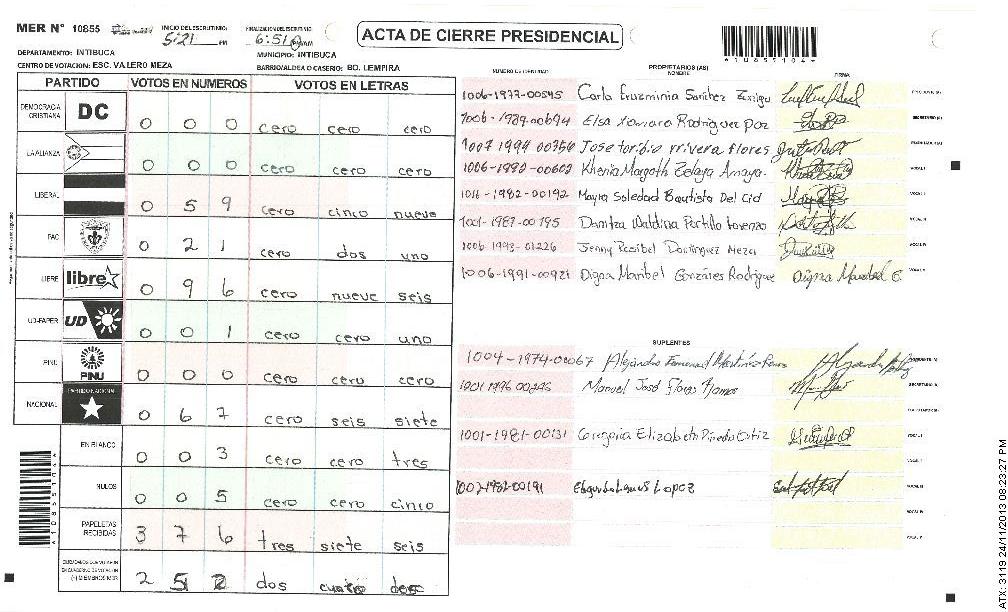 MER N° 10855 INICIO DEL ESCRUTINIO: 5:21 PM FINALIZACION DEL ESCRUTINIO 6:51 PM/AM
ACTA DE CIERRE PRESIDENCIAL
*10855104*
DEPARTAMENTO: INTIBUCA MUNICIPIO: INTIBUCA
CENTRO DE VOTACION: ESC. VALERO MEZA BARRIO/ALDEA O CASERIO: BO. LEMPIRA
PARTIDO VOTOS EN NUMEROS VOTOS EN LETRAS
DEMOCRACIA CRISTIANA DC 0 0 0 cero cero cero
LA ALIANZA 0 0 0 cero cero cero
LIBERAL 0 5 9 cero cinco nueve
PAC 0 2 1 cero dos uno
LIBRE libre 0 9 6 cero nueve seis
UD-FAPER UD 0 0 1 cero cero uno
PINU PINU 0 0 0 cero cero cero
NACIONAL PARTIDO NACIONAL 0 6 7 cero seis siete
EN BLANCO 0 0 3 cero cero tres
NULOS 0 0 5 cero cero cinco
PAPELETAS RECIBIDAS 3 7 6 tres siete seis
2 5 2 dos
NUMERO DE IDENTIDAD PROPIETARIOS (AS) NOMBRE FIRMA
1006-1977-00545 Carla Eruzminia Sanchez
1006-1989-00694 Elsa Xiomara Rodriguez paz
1007 1994 00356 Jose toribio rrivera flores
1006-1992-00603 Khenia Margoth Zelaya Amaya
1016-1982-00192 Mayra Soledad Bautista Del Cid
1001-1987-00195 Danitza Waldina Portillo Lorenzo
1006 1993-01226 Jenny Rosibel Dominguez Meza
1006-1991-00921 Digna Maribel Gonzáres Rodrigue
SUPLENTES
1004-1974-00067 Alejandro Martínez
1001 1996 00245 Manuel José Flores Ramos
1001-1981-00131 Gregoria Elizabeth Pineda Ortiz
1002-1982-00191 Lopez
ATX: 3119 24/11/2013 08:23:27 PM